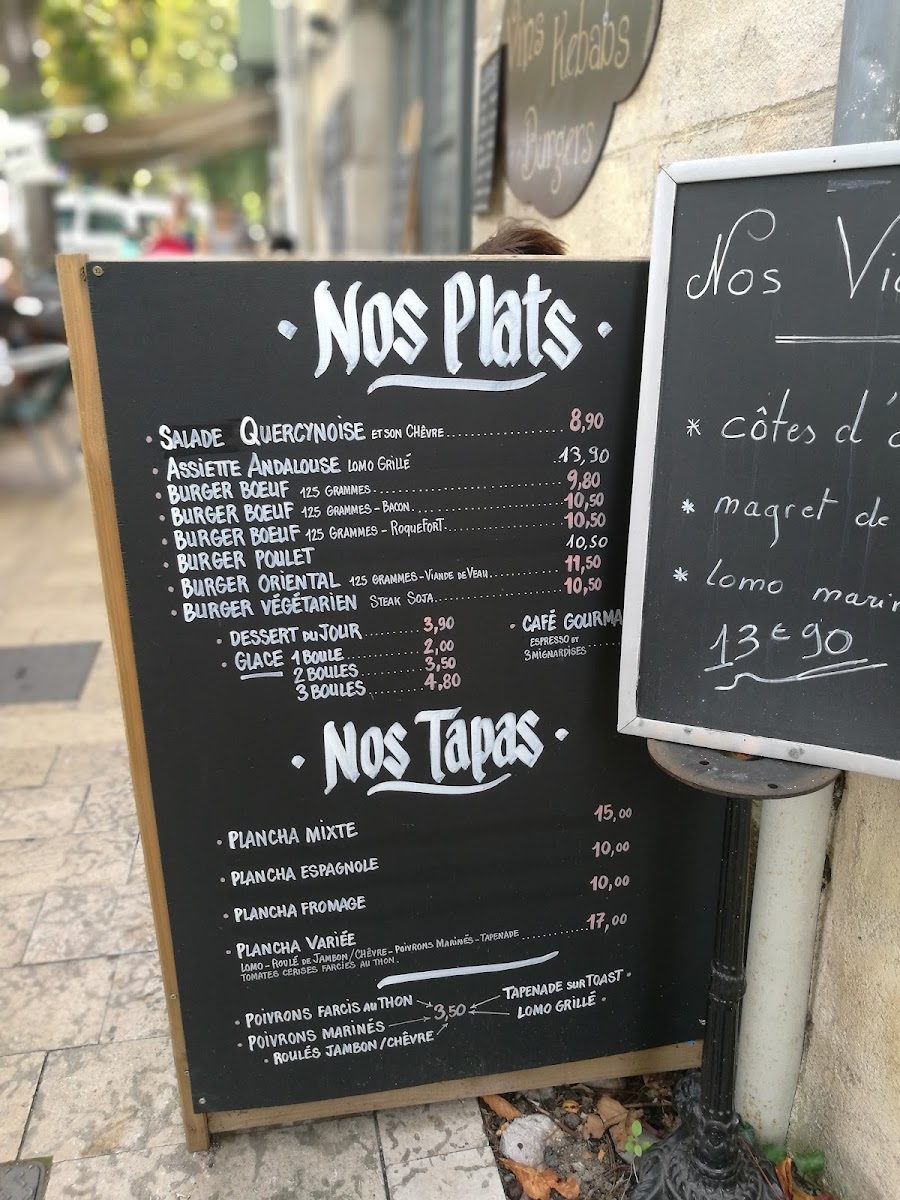 Kebabs
Burgers
· Nos Plats ·
• SALADE QUERCYNOISE ET SON CHÈVRE.................. 8,90
• ASSIETTE ANDALOUSE LOMO GRILLÉ .13,90
• BURGER BŒUF 125 GRAMMES.............................. 9,80
• BURGER BŒUF 125 GRAMMES - BACON........................ 10,50
• BURGER BŒUF 125 GRAMMES - ROQUEFORT................... 10,50
• BURGER POULET 10,50
• BURGER ORIENTAL 125 GRAMMES - VIANDE DE VEAU............ 11,50
• BURGER VÉGÉTARIEN STEAK SOJA...................... 10,50
• DESSERT DU JOUR.......... 3,90
• GLACE 1 BOULE.............. 2,00
2 BOULES........... 3,50
3 BOULES.......... 4,80
• CAFÉ GOURMA
ESPRESSO ET
3 MIGNARDISES ......
· Nos Tapas ·
• PLANCHA MIXTE 15,00
• PLANCHA ESPAGNOLE 10,00
• PLANCHA FROMAGE 10,00
• PLANCHA VARIÉE 17,00
LOMO - ROULÉ DE JAMBON / CHÈVRE - POIVRONS MARINÉS - TAPENADE............
TOMATES CERISES FARCIES AU THON.
• POIVRONS FARCIS AU THON
• POIVRONS MARINÉS
• ROULÉS JAMBON / CHÈVRE
3,50
TAPENADE SUR TOAST •
LOMO GRILLÉ •
Nos Via
* côtes d'
* magret de
* lomo marin
13€90